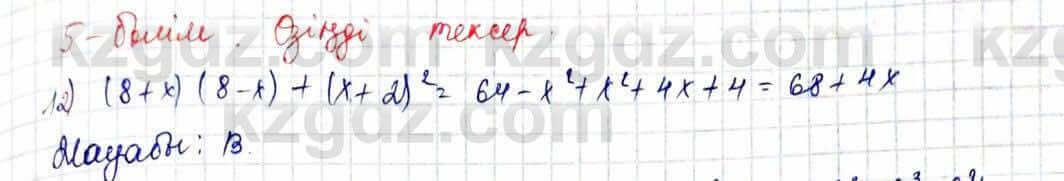 5-бөлім. Өзіңді тексер.
12) (8+x)(8-x)+(x+2)²= 64-x²+x²+4x+4=68+4x
Жауабы: B.
kzgdz.com